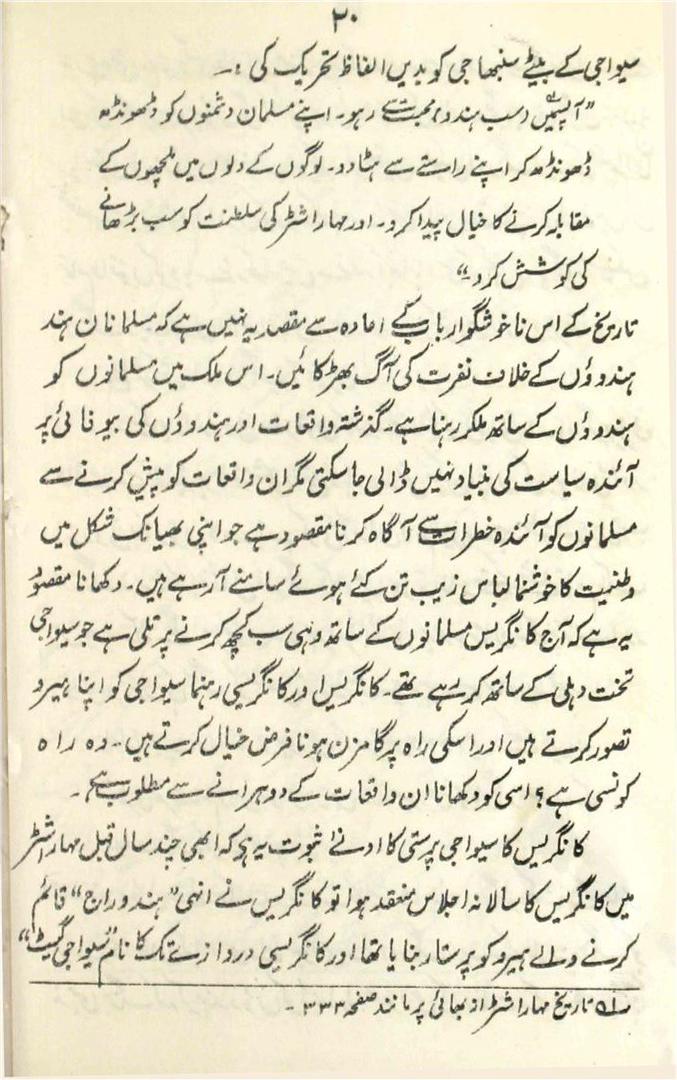 ۲۰
سیواجی کے بیٹے سنبھاجی کو بدیں الفاظ تحریک کی :۔
"آپسمیں (سب ہندو) محبت سے رہو۔ اپنے مسلمان دشمنوں کو ڈھونڈھ
ڈھونڈھ کر اپنے راستے سے ہٹا دو۔ لوگوں کے دلوں میں ملچھوں کے
مقابلہ کرنے کا خیال پیدا کرو۔ اور مہاراشٹر کی سلطنت کو سب بڑھانے
کی کوشش کرو۔"
تاریخ کے اس ناخوشگوار باب کے اعادہ سے مقصد یہ نہیں ہے کہ مسلمانان ہند
ہندوؤں کے خلاف نفرت کی آگ بھڑکائیں۔ اس ملک میں مسلمانوں کو
ہندوؤں کے ساتھ ملکر رہنا ہے۔ گذشتہ واقعات اور ہندوؤں کی بیوفائی پر
آئندہ سیاست کی بنیاد نہیں ڈالی جا سکتی مگر ان واقعات کو پیش کرنے سے
مسلمانوں کو آئندہ خطرات سے آگاہ کرنا مقصود ہے جو اپنی بھیانک شکل میں
وطنیت کا خوشنما لباس زیب تن کئے ہوئے سامنے آ رہے ہیں۔ دکھانا مقصود
یہ ہے کہ آج کانگریس مسلمانوں کے ساتھ وہی سب کچھ کرنے پر تلی ہے جو سیواجی
تخت دہلی کے ساتھ کر رہے تھے۔ کانگریس اور کانگریسی رہنما سیواجی کو اپنا ہیرو
تصور کرتے ہیں اور اسکی راہ پر گامزن ہونا فرض خیال کرتے ہیں۔ وہ راہ
کونسی ہے؟ اسی کو دکھانا ان واقعات کے دوہرانے سے مطلوب ہے۔
کانگریس کا سیواجی پرستی کا ادنےٰ ثبوت یہ ہے کہ ابھی چند سال قبل مہاراشٹر
میں کانگریس کا سالانہ اجلاس منعقد ہوا تو کانگریس نے انہی "ہندو راج" قائم
کرنے والے ہیرو کو پرستار بنایا تھا اور کانگریسی دروازے تک کا نام "سیواجی گیٹ"
تاریخ مہاراشٹر از بھائی پرمانند صفحہ ۳۳۳۔